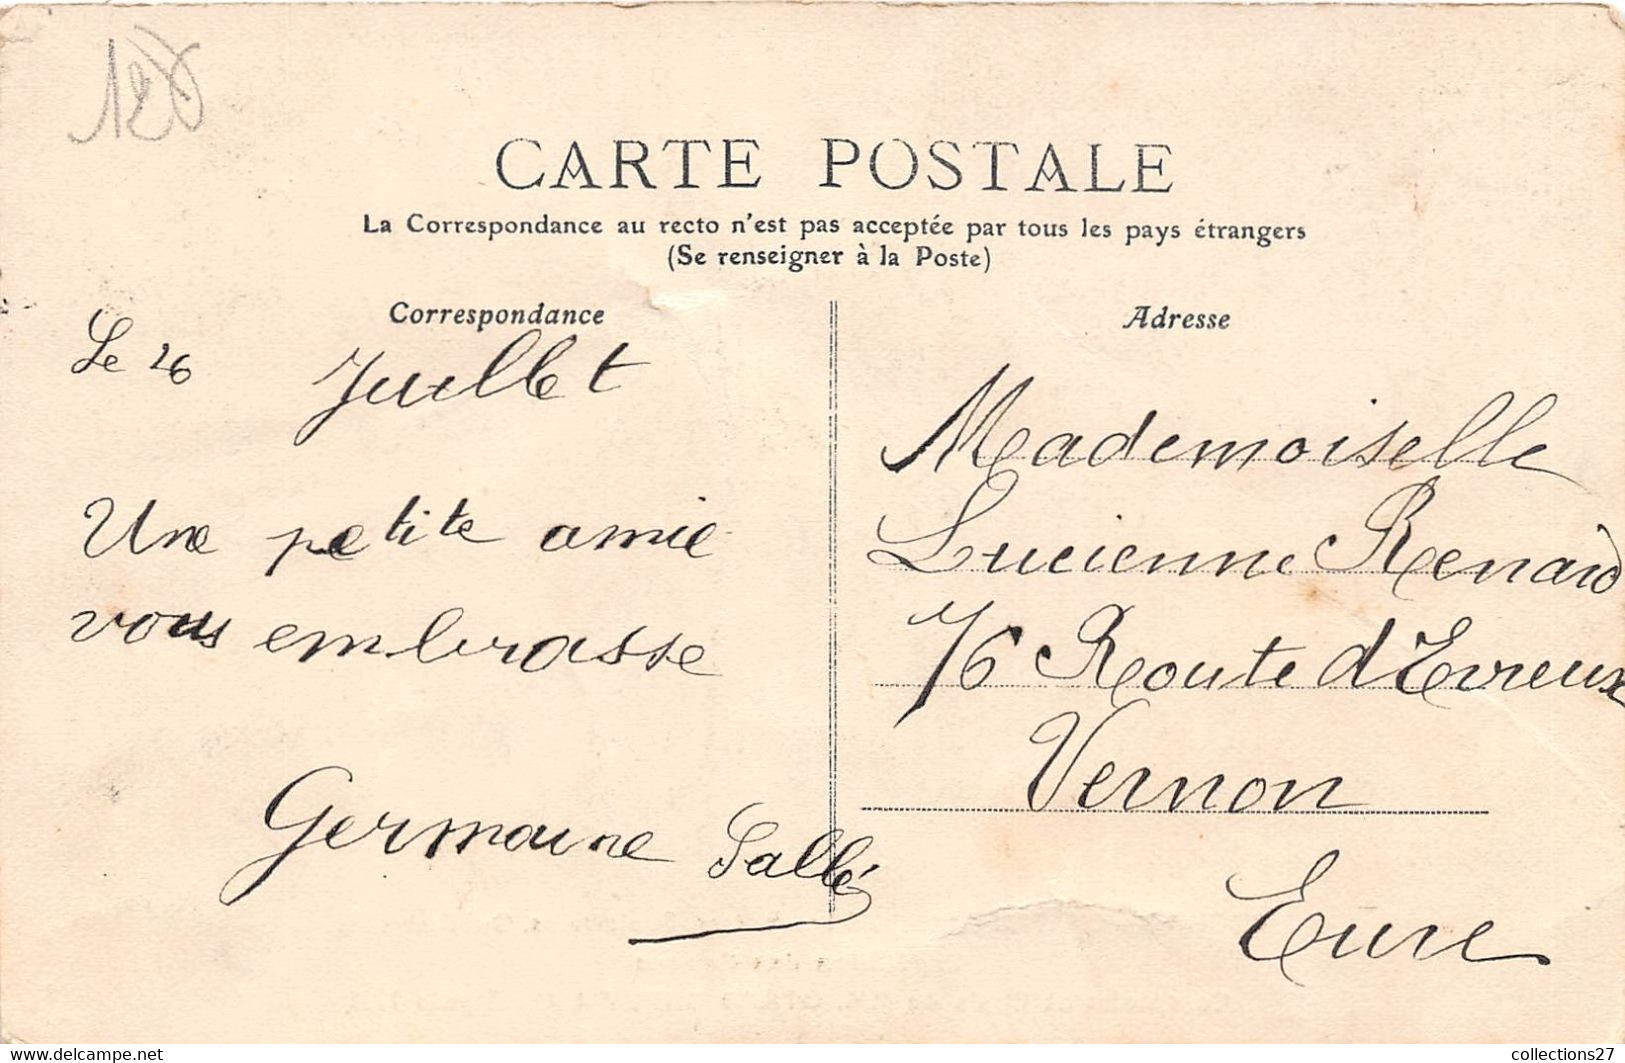 CARTE POSTALE
La Correspondance au recto n'est pas acceptée par tous les pays étrangers
(Se renseigner à la Poste)
Correspondance
Le 26 Juillet
Une petite amie
vous embrasse
Germaine Sallé
Adresse
Mademoiselle
Lucienne Renard
76 Route d'Evreux
Vernon
Eure
https://www.delcampe.net
collections27